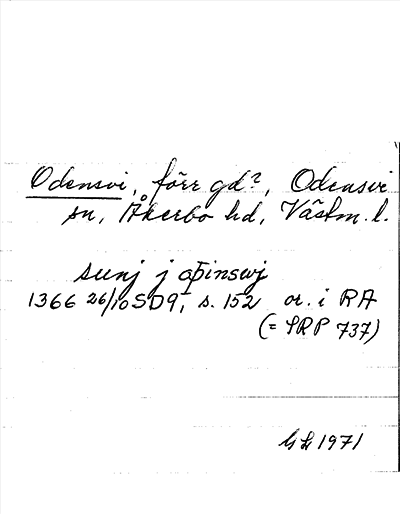 Odensvi, förr gd?, Odensvi
sn, Åkerbo hd, Västm. l.
sunj j oþinswj
1366 26/10 SD9, s. 152 or. i RA
(= SRP 737)
1971